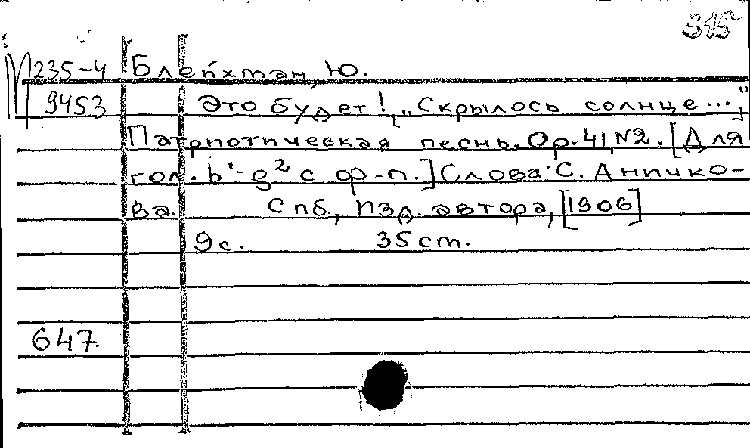 M 235-4 Блейхман, Ю.
9453 Это будет! „Скрылось солнце..."
Патриотическая песнь. Op. 41, N2. [Для
гол. b¹-g² с ф-п.] Слова: С. Аничко-
ва. Спб., изд. автора, [1906]
9 с. 35 cm.
647